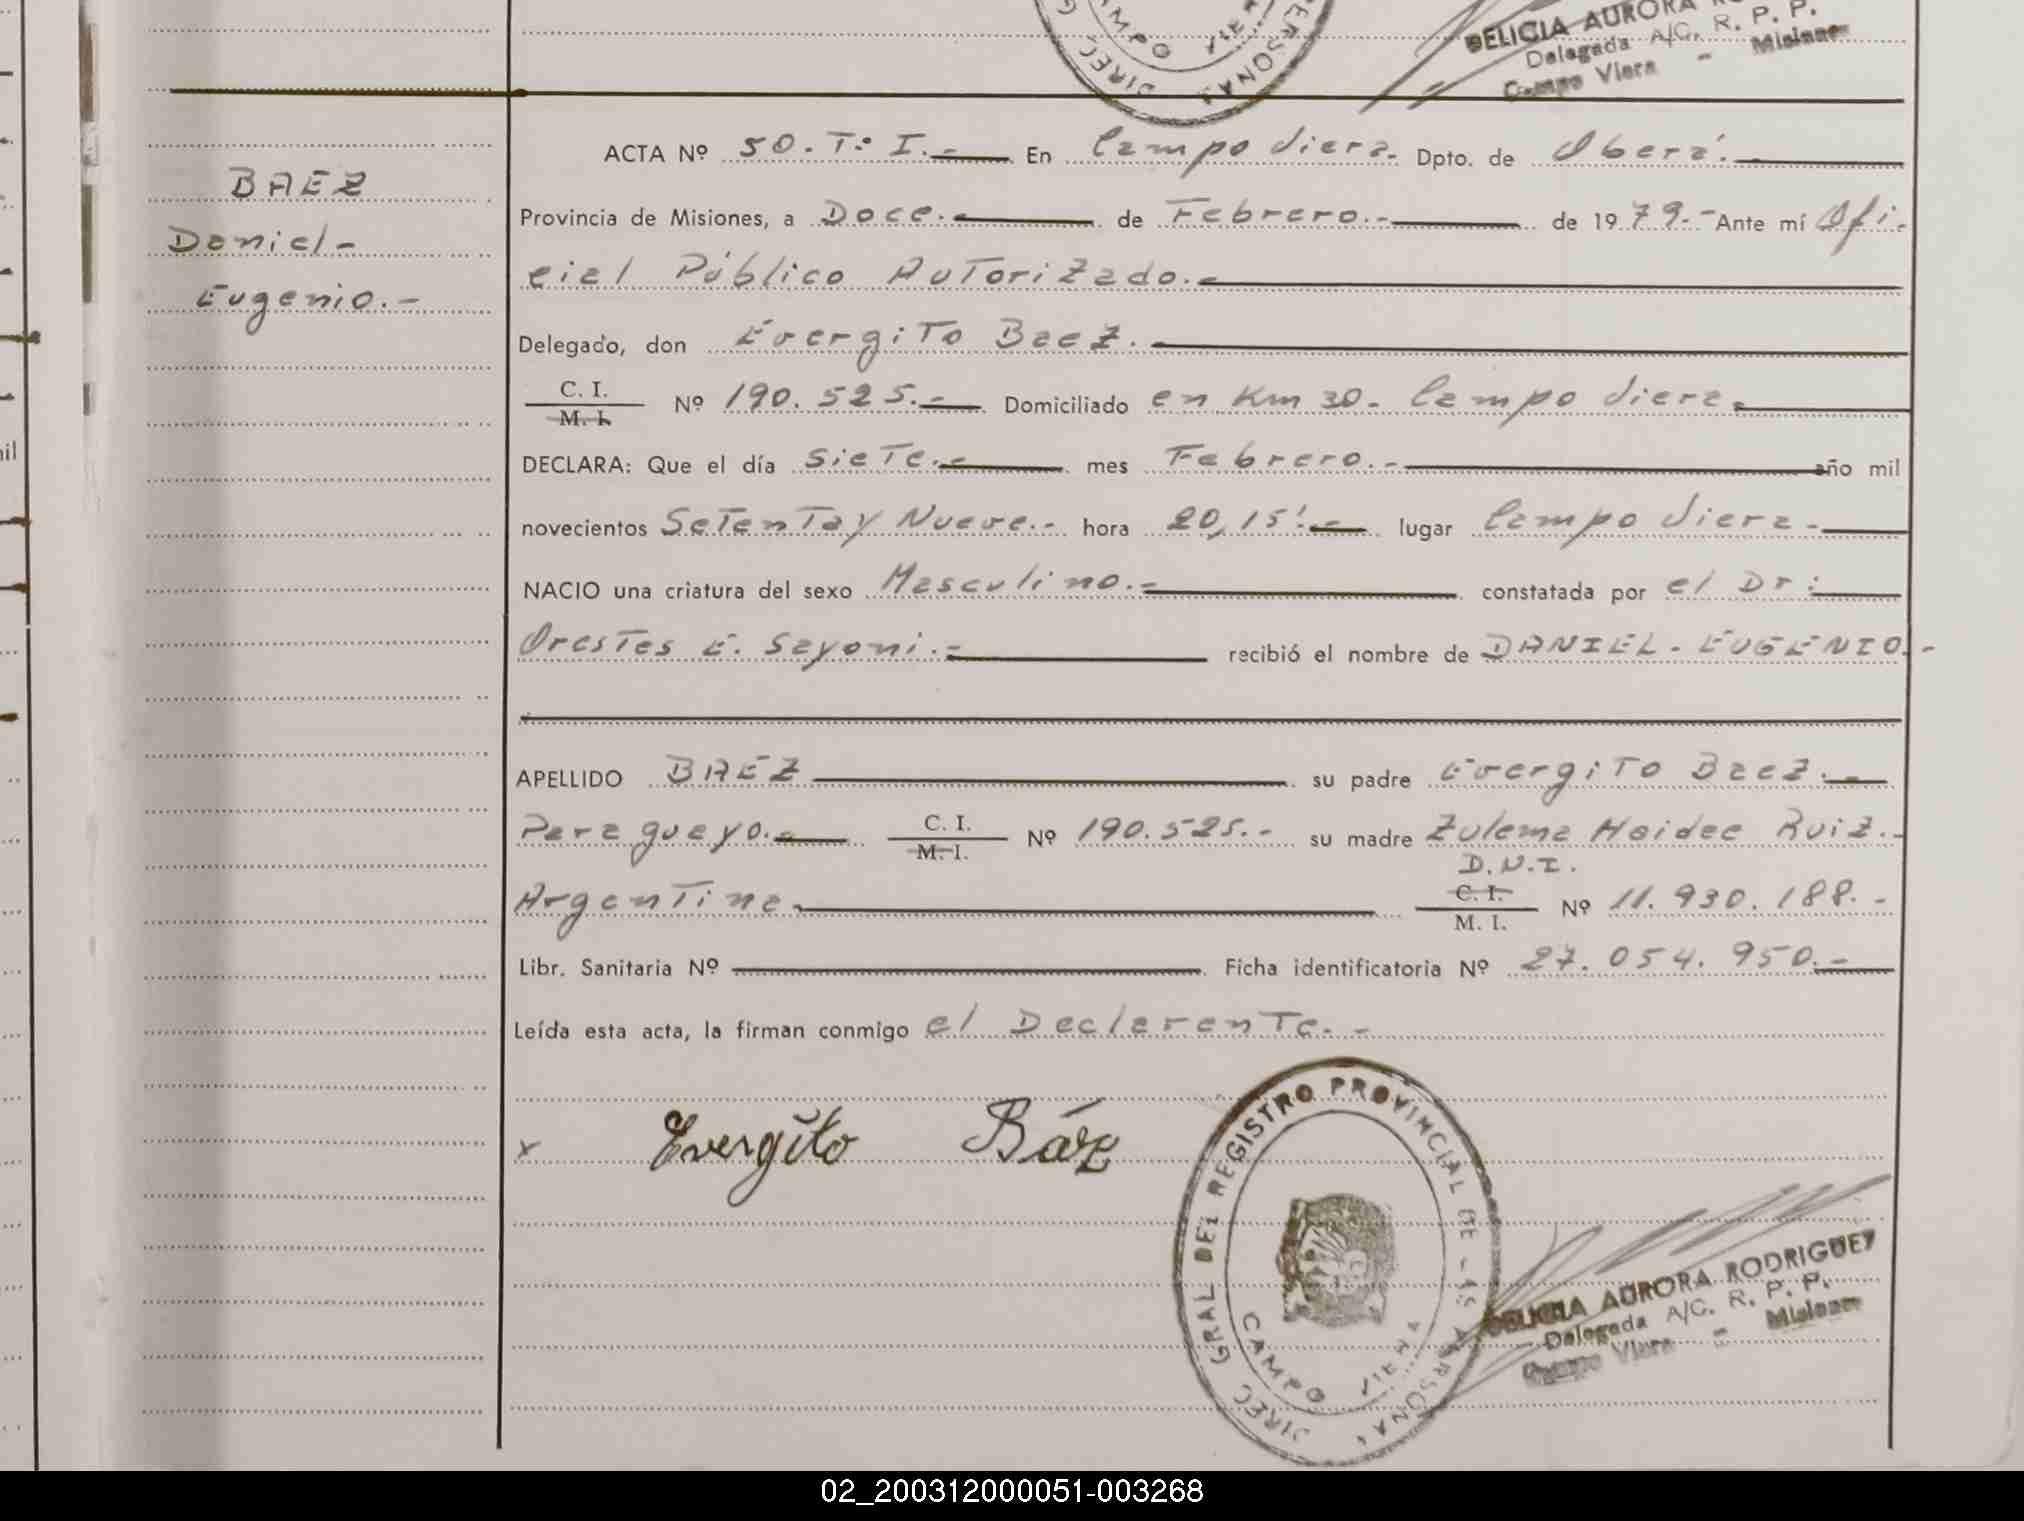 DELICIA AURORA
Delegada A/C. R. P. P.
Campo Viera - Misiones
BAEZ
Daniel-
Eugenio.-
ACTA Nº 50. Tº I.- En Campo Viera- Dpto. de Oberá.-
Provincia de Misiones, a Doce.- de Febrero.- de 1979.- Ante mí Ofi-
cial Público Autorizado.-
Delegado, don Evergito Baez.
C. I.
M. I. Nº 190.525.- Domiciliado en Km 30- Campo Viera.
DECLARA: Que el día Siete.- mes Febrero.- año mil
novecientos Setenta y Nueve.- hora 20,15'.- lugar Campo Viera.-
NACIO una criatura del sexo Masculino.- constatada por el Dr:
Orestes E. Sayoni.- recibió el nombre de DANIEL-EUGENIO.-
APELLIDO BAEZ su padre Evergito Baez.-
Paraguayo.- C. I.
M. I. Nº 190.525.- su madre Zulema Haidee Ruiz.-
D.N.I.
Argentina. C. I.
M. I. Nº 11.930.188.-
Libr. Sanitaria Nº Ficha identificatoria Nº 27.054.950.-
Leída esta acta, la firman conmigo el Declarante.-
x Evergito Báez
DIREC GRAL DEL REGISTRO PROVINCIAL DE LAS PERSONAS
CAMPO VIERA
DELICIA AURORA RODRIGUEZ
Delegada A/C. R. P. P.
Campo Viera - Misiones
02_200312000051-003268